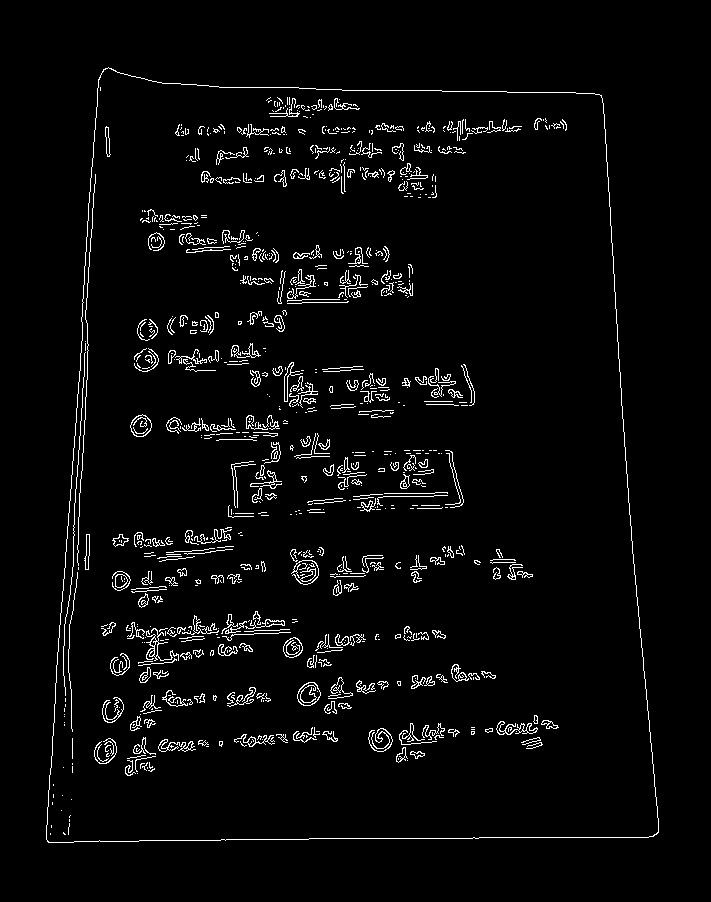 Differentiation
If f(x) represent a curve, then its differentiation f'(x)
at point x=a gives slope of the curve
f'(x) = dy/dx
Theorems =
① Chain Rule =
y = f(u) and u = g(x)
then dy/dx = dy/du × du/dx
② (f ± g)' = f' ± g'
③ Product Rule =
y = u
dy/dx = u dv/dx + v du/dx
④ Quotient Rule =
y = u/v
dy/dx = v du/dx - u dv/dx / v²
* Basic Results =
① d/dx xⁿ = n xⁿ⁻¹ d/dx √x = 1/2 x^(1/2-1) = 1/2√x
* Trigonometric function =
① d/dx sin x = cos x ② d/dx cos x = - sin x
③ d/dx tan x = sec² x ④ d/dx sec x = sec x tan x
⑤ d/dx cosec x = -cosec x cot x ⑥ d/dx cot x = - cosec² x